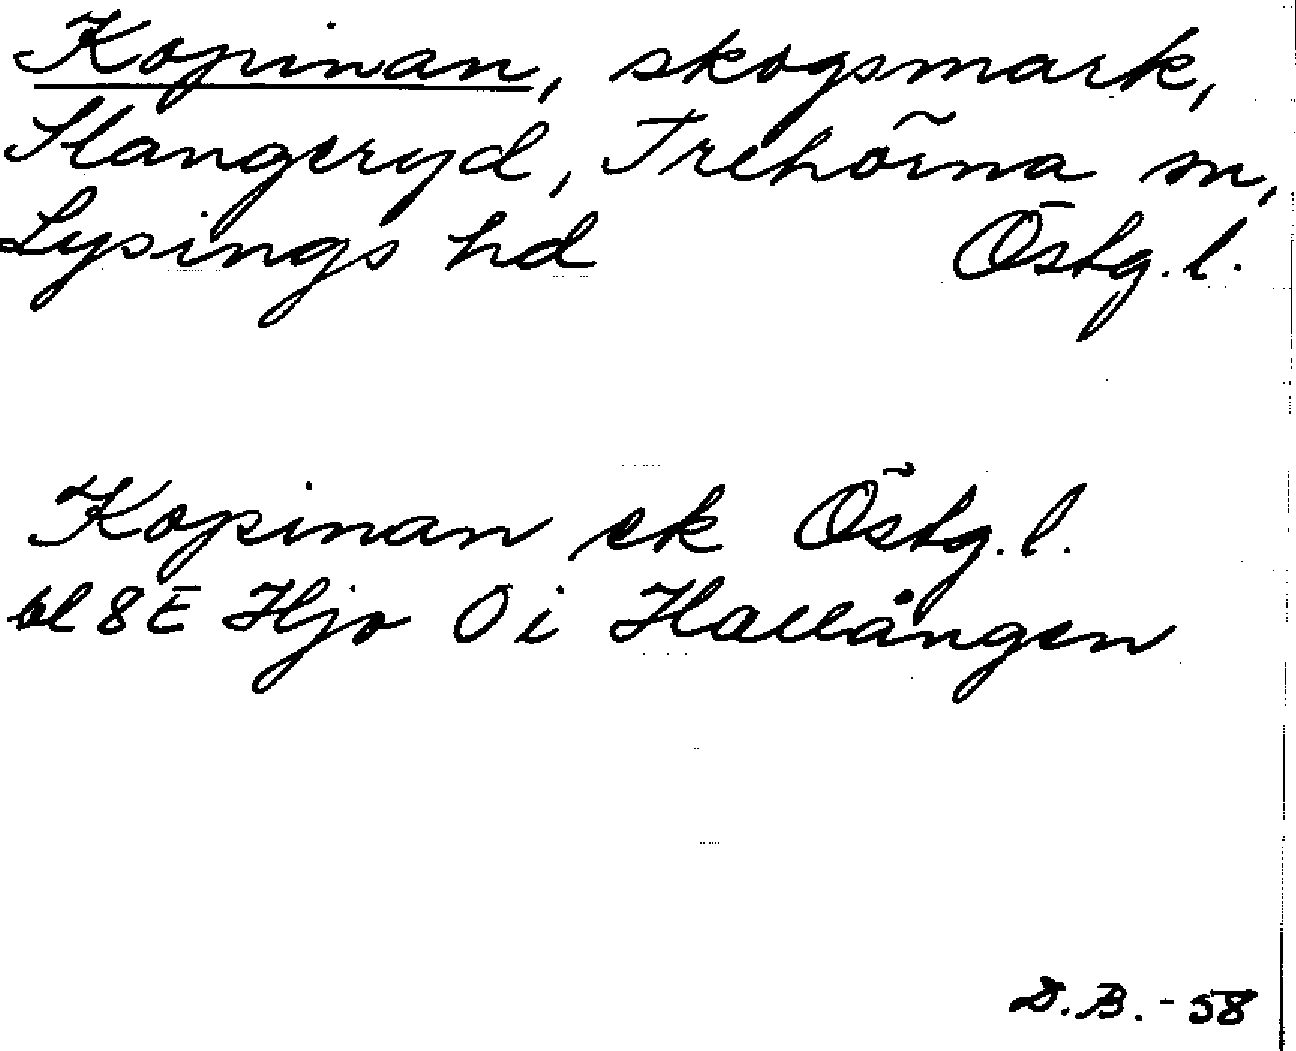 Kopinan, skogsmark,
Slangeryd, Trehörna sn,
Lysings hd Östg. l.
Kopinan ek Östg. l.
bl 8E Hjo Ö i Hallången
D.B. - 58